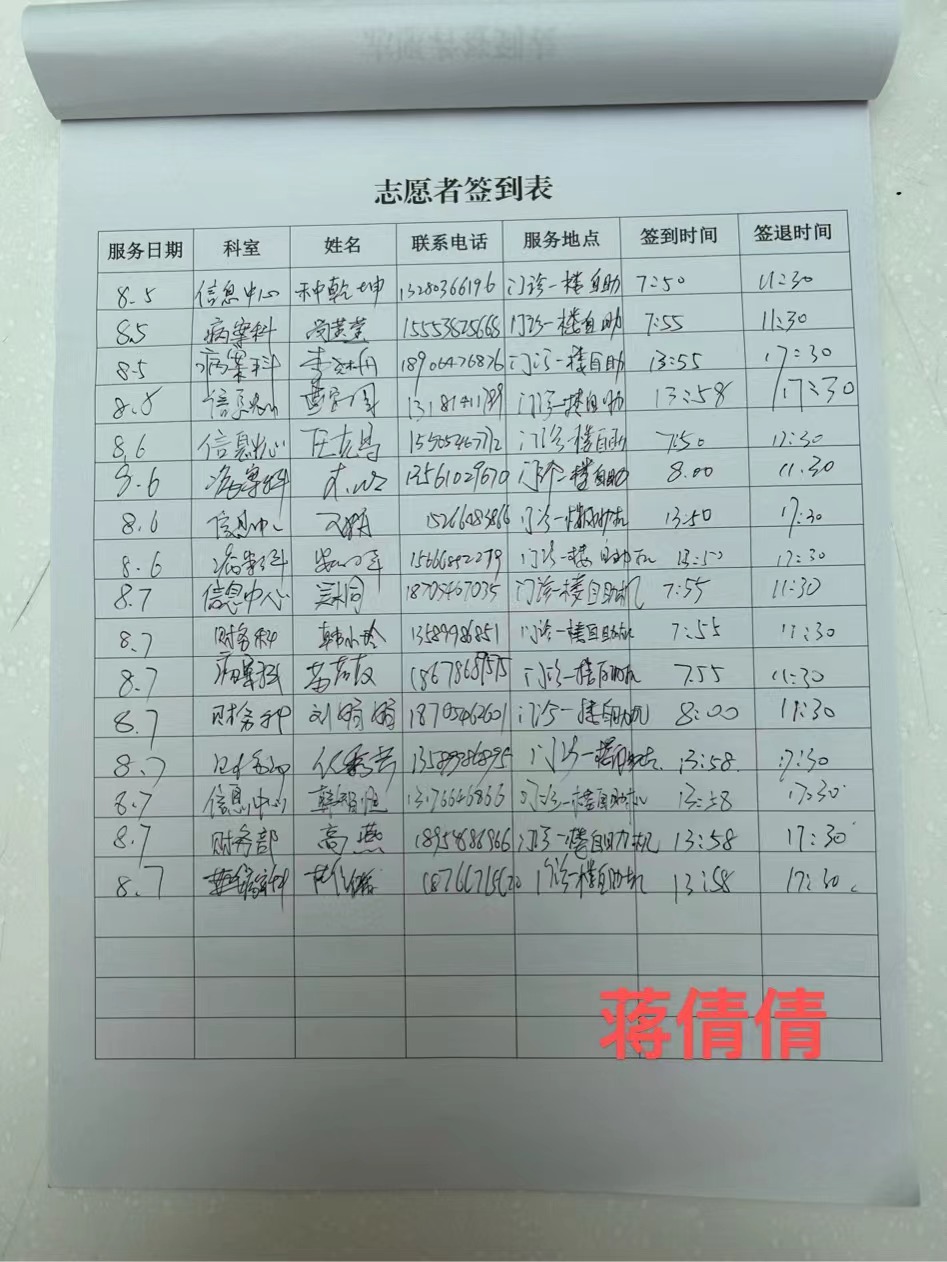 志愿者签到表
服务日期 科室 姓名 联系电话 服务地点 签到时间 签退时间
8.5 信息中心 种乾坤 13280366196 门诊一楼自助 7:50 11:30
8.5 病案科 门诊一楼自助 7:55 11:30
8.5 病案科 18906426826 门诊一楼自助 13:55 17:30
8.5 信息中心 门诊一楼自助 13:58 17:30
8.6 信息中心 门诊一楼自助 7:50 11:30
8.6 病案科 13561029670 门诊一楼自助 8.00 11.30
8.6 信息中心 门诊一楼自助机 13:50 17:30
8.6 病案科 门诊一楼自助机 13:50 17:30
8.7 信息中心 18705467035 门诊一楼自助机 7:55 11:30
8.7 财务科 韩小玲 13589986851 门诊一楼自助机 7:55 11:30
8.7 病案科 门诊一楼自助机 7.55 11:30
8.7 财务科 刘娟娟 18705462601 门诊一楼自助机 8:00 11:30
8.7 13589986895 门诊一楼自助机 13:58 17:30
8.7 信息中心 13176646866 门诊一楼自助机 13:58 17:30
8.7 财务部 高燕 18954686966 门诊一楼自助机 13:58 17:30
8.7 门诊一楼自助机 13:58 17:30
蒋倩倩